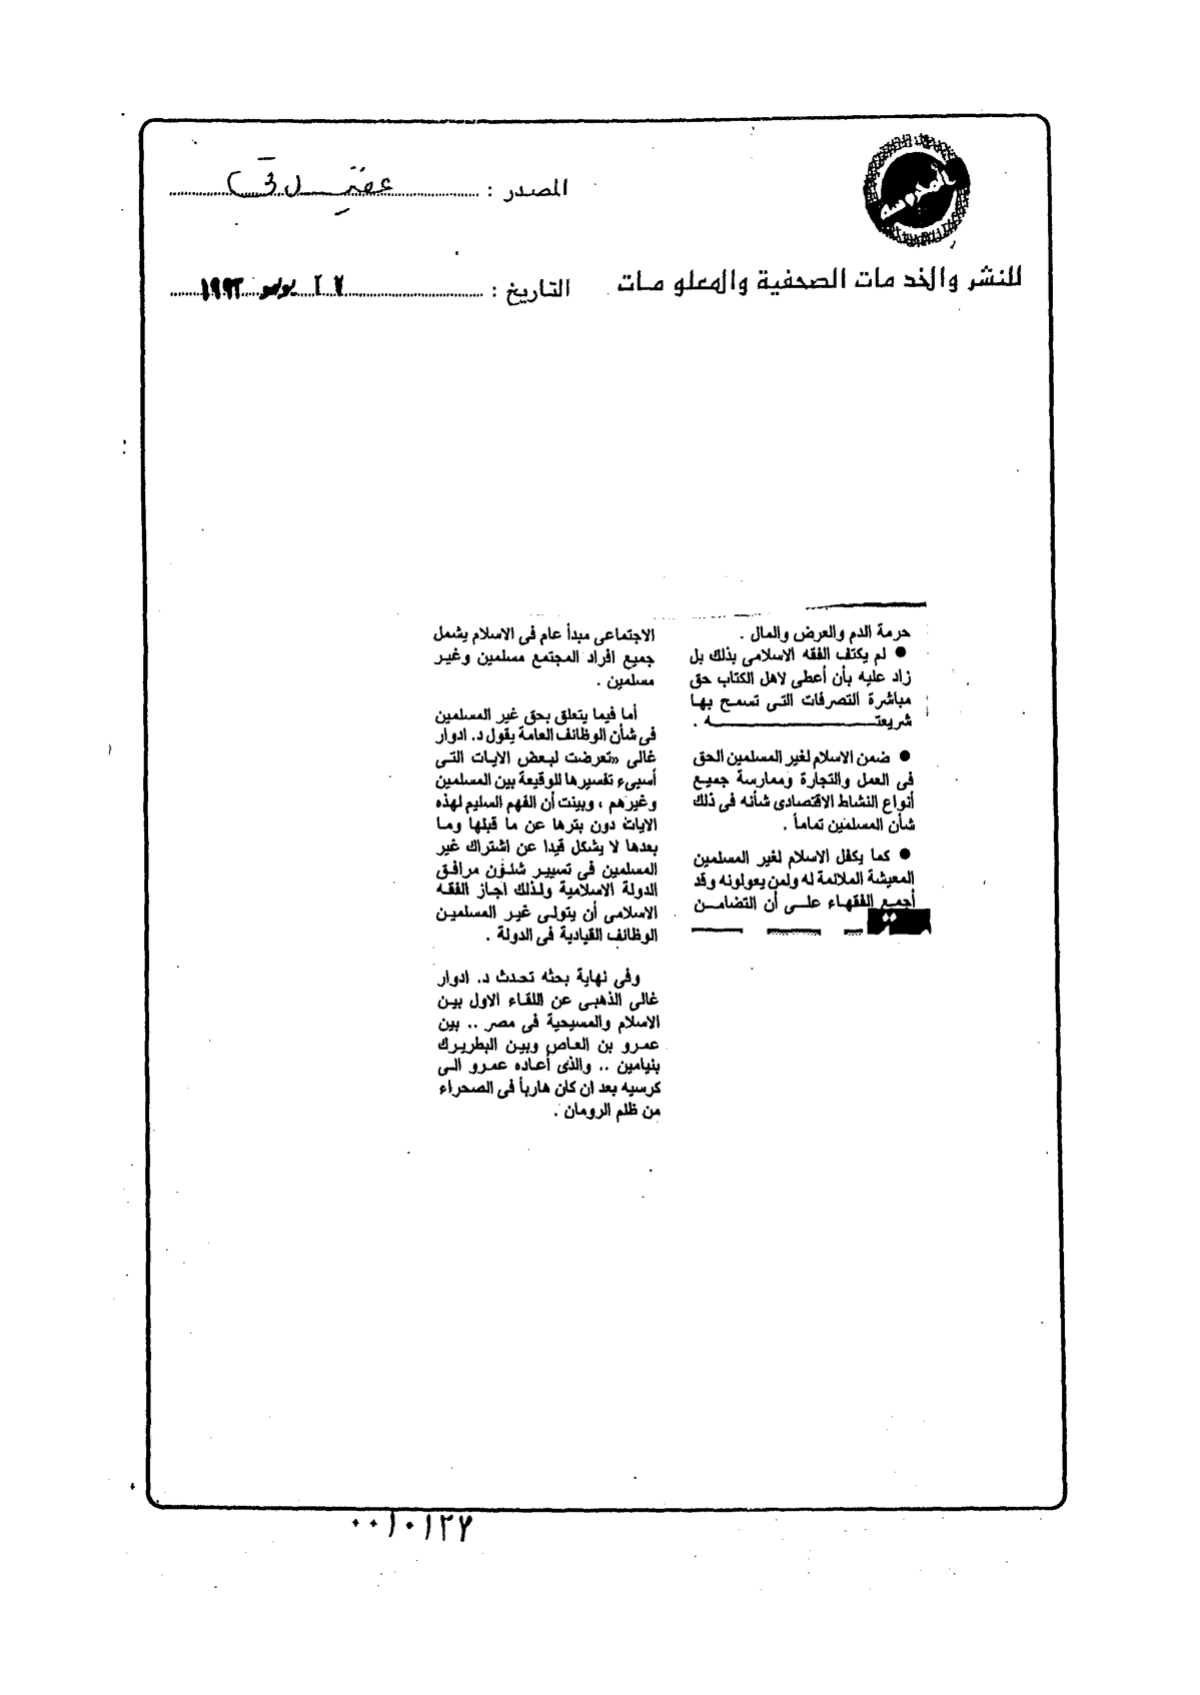 المحروسة
للنشر والخدمات الصحفية والمعلومات
المصدر :
التاريخ : ٢٧ يوليو ١٩٩٢
حرمة الدم والعرض والمال .
● لم يكتف الفقه الاسلامى بذلك بل
زاد عليه بأن أعطى لاهل الكتاب حق
مباشرة التصرفات التى تسمح بها
شريعته .
● ضمن الاسلام لغير المسلمين الحق
فى العمل والتجارة وممارسة جميع
أنواع النشاط الاقتصادى شأنه فى ذلك
شأن المسلمين تماماً .
● كما يكفل الاسلام لغير المسلمين
المعيشة الملائمة له ولمن يعولونه وقد
أجمع الفقهاء على أن التضامن
الاجتماعى مبدأ عام فى الاسلام يشمل
جميع افراد المجتمع مسلمين وغير
مسلمين .
أما فيما يتعلق بحق غير المسلمين
فى شأن الوظائف العامة يقول د. ادوار
غالى «تعرضت لبعض الايات التى
أسىء تفسيرها للوقيعة بين المسلمين
وغيرهم ، وبينت أن الفهم السليم لهذه
الايات دون بترها عن ما قبلها وما
بعدها لا يشكل قيدا عن اشتراك غير
المسلمين فى تسيير شئون مرافق
الدولة الاسلامية ولذلك اجاز الفقه
الاسلامى أن يتولى غير المسلمين
الوظائف القيادية فى الدولة .
وفى نهاية بحثه تحدث د. ادوار
غالى الذهبى عن اللقاء الاول بين
الاسلام والمسيحية فى مصر .. بين
عمرو بن العاص وبين البطريرك
بنيامين .. والذى أعاده عمرو الى
كرسيه بعد ان كان هارباً فى الصحراء
من ظلم الرومان .
٠٠١٠١٢٧